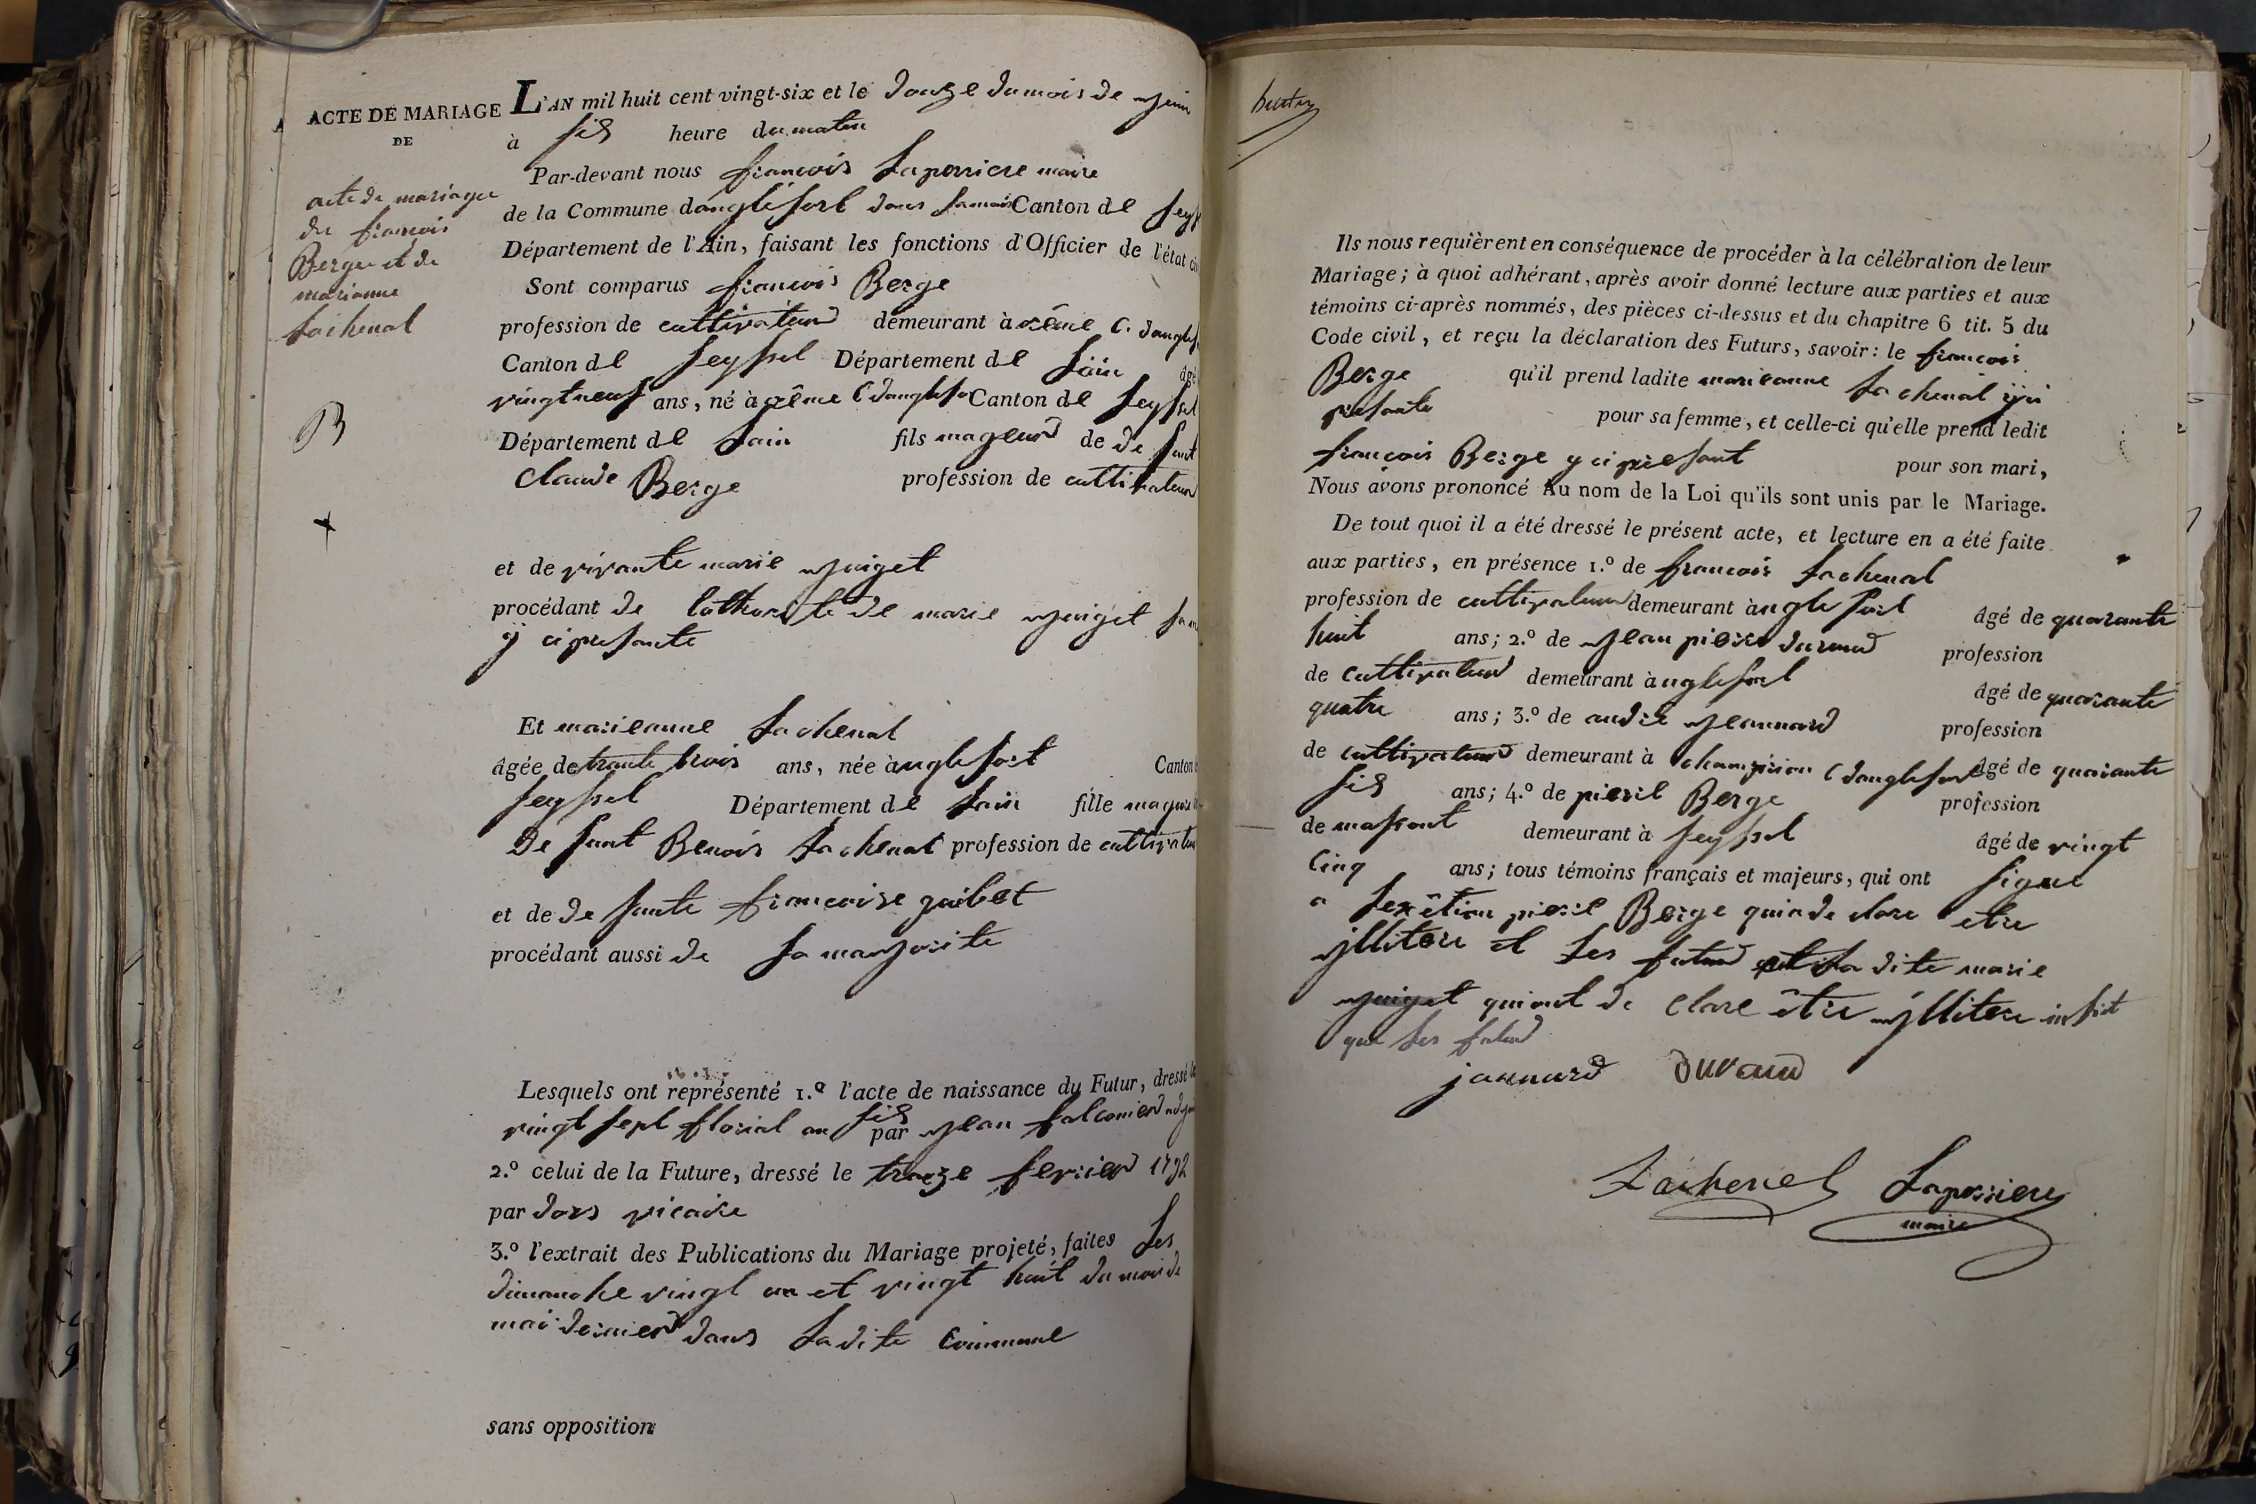 ACTE DE MARIAGE
DE
acte de mariage
du francois
Berge et de
marianne
Lachenal
B
L'AN mil huit cent vingt-six et le douze du mois de juin
à six heure du matin
Par-devant nous francois Laperriere maire
de la Commune danglefort dans Canton de
Département de l'Ain, faisant les fonctions d'Officier de l'état
Sont comparus francois Berge
profession de cultivateur demeurant à C.
Canton de Seyssel Département de Lain âgé
vingt neuf ans, né à Canton de Seyssel
Département de Lain fils mageur de de funt
Claude Berge profession de cultivateur
et de vivante marie juiget
procédant de de marie juiget
y ci presante
Et marieanne Lachenal
âgée de trante trois ans, née à anglefort Canton
Seyssel Département de Lain fille
de funt Benois Lachenal profession de
et de de funte francoise
procédant aussi de sa marjorite
Lesquels ont représenté 1.º l'acte de naissance du Futur, dressé le
vingt sept florial an six par jean falconier
2.º celui de la Future, dressé le treize fevrier 1792
par vicaire
3.º l'extrait des Publications du Mariage projeté, faites les
dimanche vingt un et vingt huit du mois de
mai dernier dans La dite Commune
sans opposition
Ils nous requièrent en conséquence de procéder à la célébration de leur
Mariage; à quoi adhérant, après avoir donné lecture aux parties et aux
témoins ci-après nommés, des pièces ci-dessus et du chapitre 6 tit. 5 du
Code civil, et reçu la déclaration des Futurs, savoir: le francois
Berge qu'il prend ladite marieanne Lachenal
presante pour sa femme, et celle-ci qu'elle prend ledit
francois Berge y ci presant pour son mari,
Nous avons prononcé Au nom de la Loi qu'ils sont unis par le Mariage.
De tout quoi il a été dressé le présent acte, et lecture en a été faite
aux parties, en présence 1.º de francois Lachenal
profession de cultivateur demeurant à anglefort âgé de quarante
huit ans; 2.º de jean pierre profession
de cultivateur demeurant à anglefort âgé de quarante
quatre ans; 3.º de andré jeannard profession
de cultivateur demeurant à C danglefort âgé de quarante
six ans; 4.º de pierre Berge profession
de massont demeurant à Seyssel âgé de vingt
Cinq ans; tous témoins français et majeurs, qui ont signe
a pierre Berge qui a de clare etre
jllitere et les futur et la dite marie
juiget qui ont de clare être jlliterre
que les futur
jannard
Duraud
Lachenal
Laperriere
maire